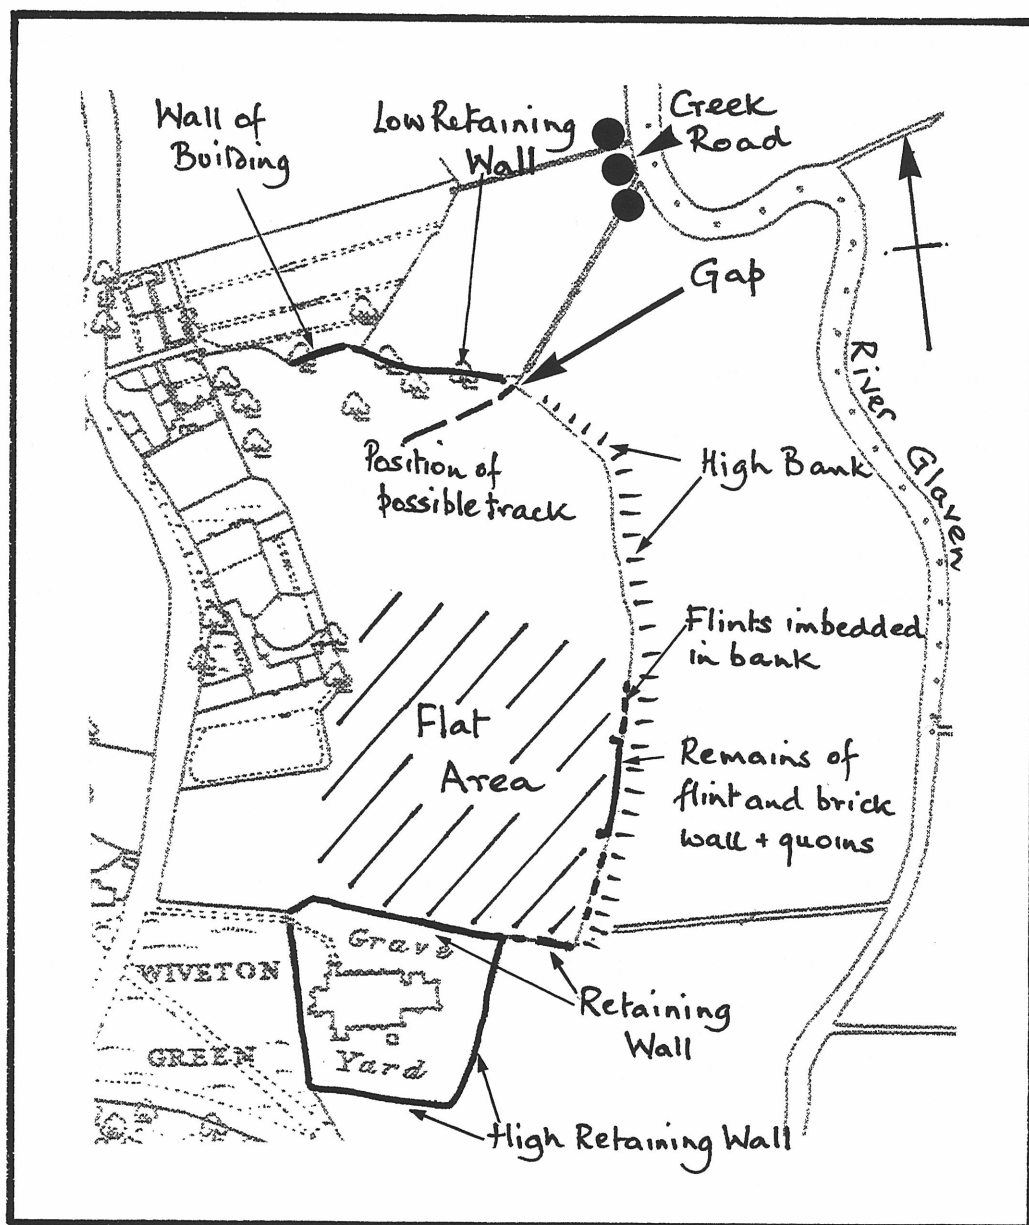 Wall of
Building
Low Retaining
Wall
Creek
Road
Gap
River Glaven
Position of
possible track
High Bank
Flints imbedded
in bank
Flat
Area
Remains of
flint and brick
wall + quoins
Grave
Yard
WIVETON
GREEN
Retaining
Wall
High Retaining Wall